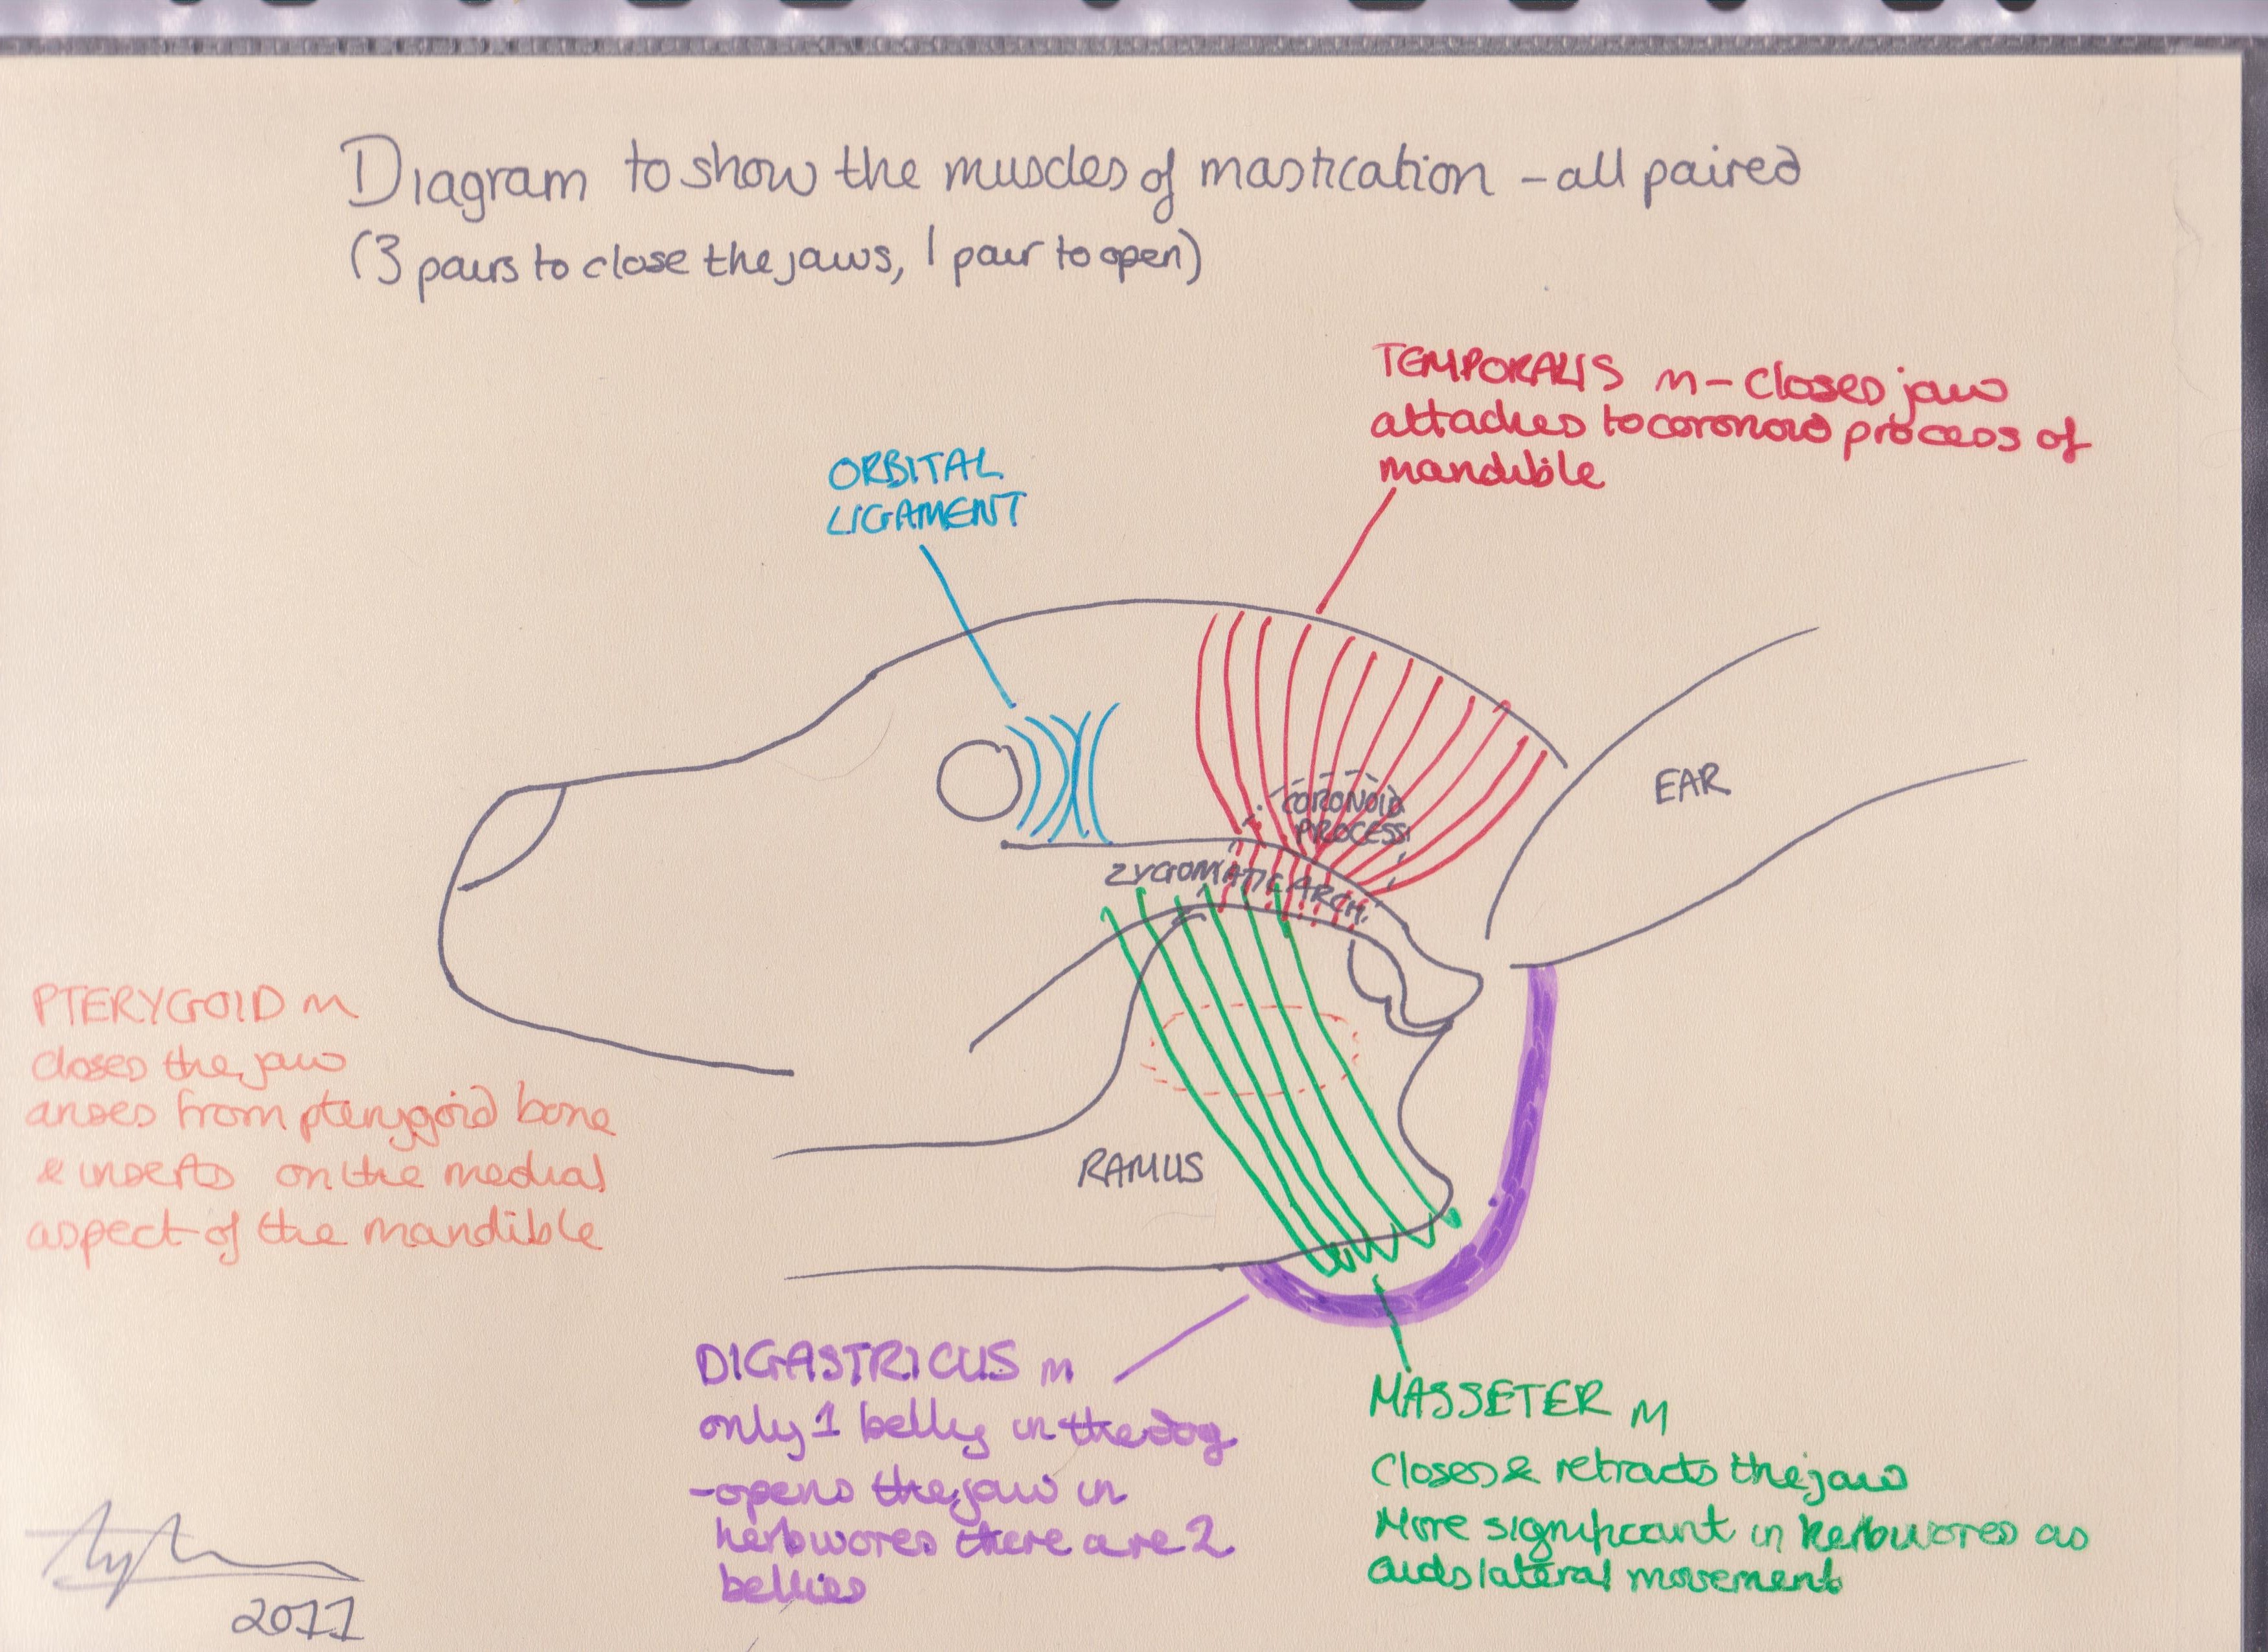 Diagram to show the muscles of mastication - all paired
(3 pairs to close the jaws, 1 pair to open)
TEMPORALIS m - closes jaw
attaches to coronoid process of
mandible
ORBITAL
LIGAMENT
EAR
CORONOID
PROCESS
ZYGOMATIC ARCH
PTERYGOID m
closes the jaw
arises from pterygoid bone
& inserts on the medial
aspect of the mandible
RAMUS
DIGASTRICUS m
only 1 belly in the dog
- opens the jaw in
herbivores there are 2
bellies
MASSETER M
Closes & retracts the jaw
More significant in herbivores as
aids lateral movement
2011